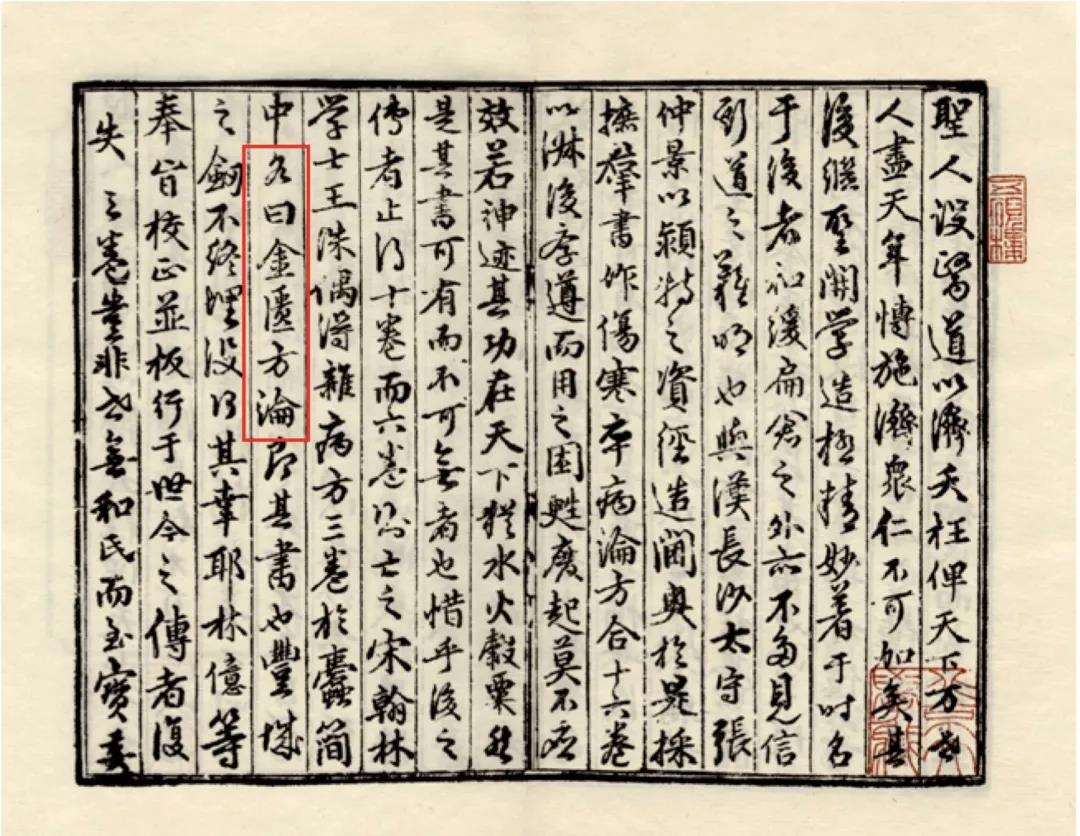 聖人設醫道以濟夭枉俾天下万世
人盡天年博施濟衆仁不可加矣其
後繼聖開学造極精妙著于时名
于後者和緩扁倉之外亦不多見信
斯道之難明也與漢長沙太守張
仲景以穎特之資徑造閫奥於是採
摭羣書作傷寒卒病論方合十六卷
以淑後学遵而用之困甦廢起莫不应
效若神迹其功在天下猶水火穀粟然
是其書可有而不可無者也惜乎後之
傳者止得十卷而六卷則亡之宋翰林
学士王洙偶得雜病方三卷於蠹簡
中名曰金匱方論即其書也豐城
之劍不終埋没何其幸耶林億等
奉旨校正並板行于世今之傳者復
失三卷豈非世無和氏而至寶妄